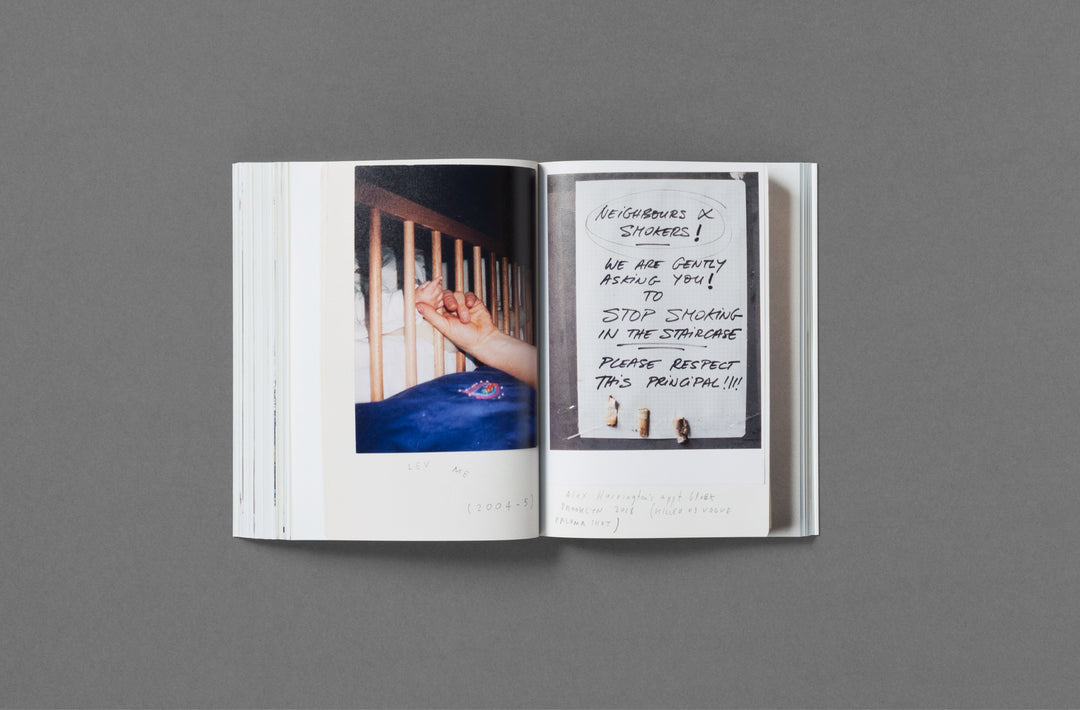 LEV ME
(2004-5)
NEIGHBOURS &
SMOKERS!
WE ARE GENTLY
ASKING YOU!
TO
STOP SMOKING
IN THE STAIRCASE
PLEASE RESPECT
THIS PRINCIPAL!!!!
Alex Harrington's appt block
BROOKLYN 2018 (KILLED US VOGUE
PALOMA SHOT)